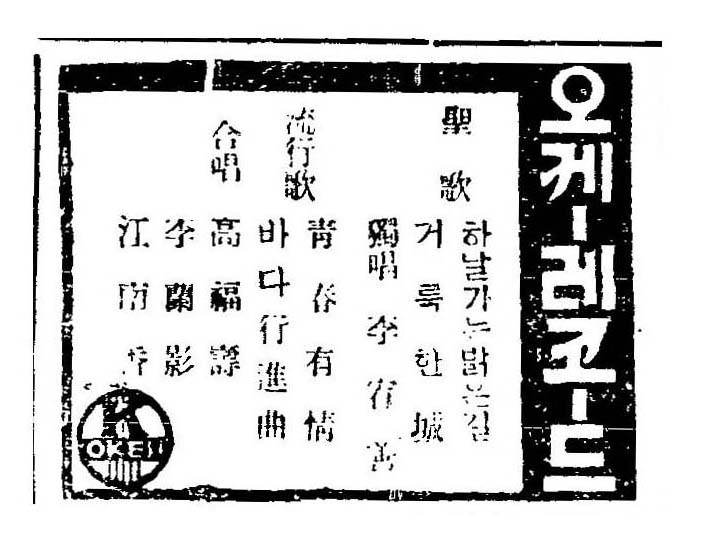 오케ー레코ー드
聖歌
하날가는밝은길
거룩한城
獨唱 李宥善
流行歌
青春有情
바다行進曲
合唱
高福壽
李蘭影
江南
OKEH